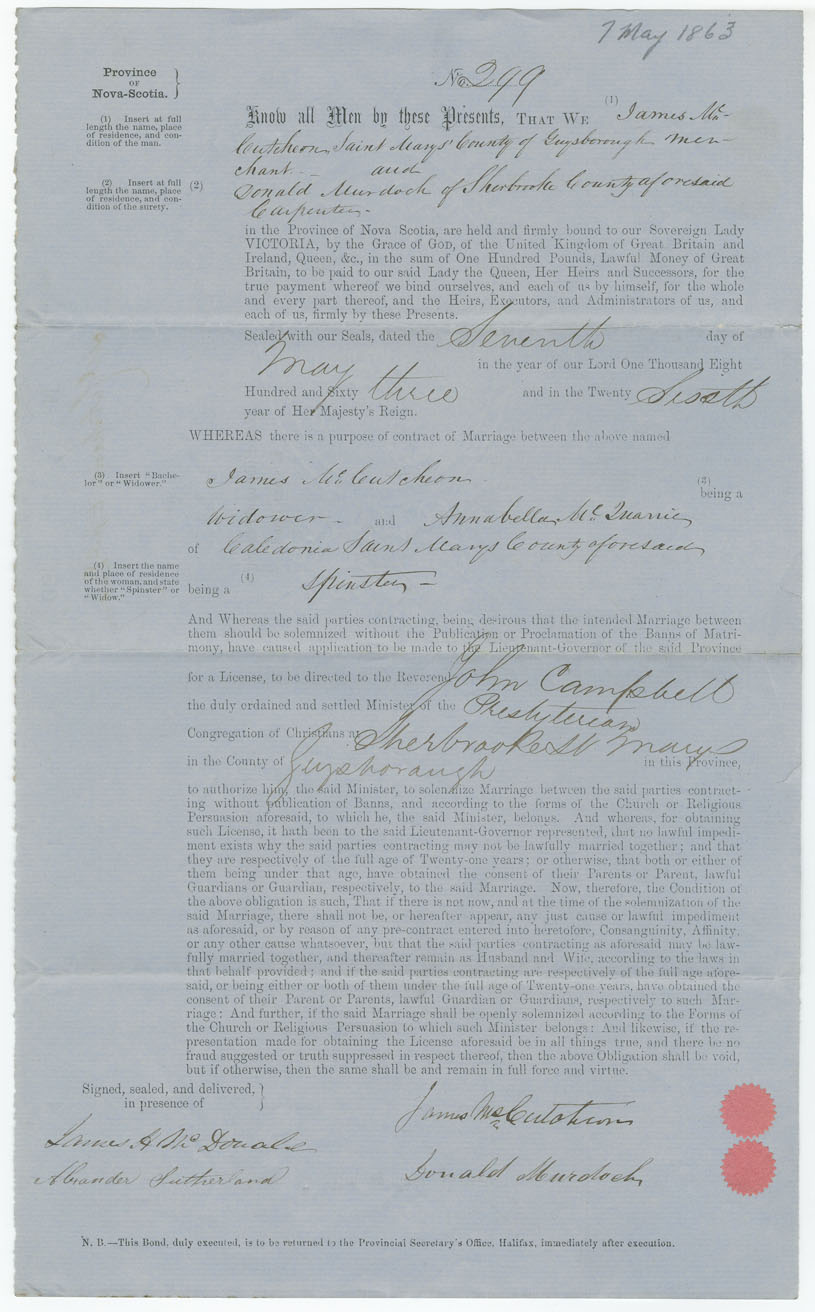 7 May 1863
Province
OF
Nova-Scotia.
No. 299
(1) Insert at full
length the name, place
of residence, and con-
dition of the man.
Know all Men by these Presents, THAT WE (1) James Mc-
Cutcheon Saint Marys' County of Guysborough Mer-
chant - and
(2) Insert at full
length the name, place
of residence, and con-
dition of the surety.
(2) Donald Murdoch of Sherbrooke County aforesaid
Carpenter -
in the Province of Nova Scotia, are held and firmly bound to our Sovereign Lady
VICTORIA, by the Grace of GOD, of the United Kingdom of Great Britain and
Ireland, Queen, &c., in the sum of One Hundred Pounds, Lawful Money of Great
Britain, to be paid to our said Lady the Queen, Her Heirs and Successors, for the
true payment whereof we bind ourselves, and each of us by himself, for the whole
and every part thereof, and the Heirs, Executors, and Administrators of us, and
each of us, firmly by these Presents.
Sealed with our Seals, dated the Seventh day of
May in the year of our Lord One Thousand Eight
Hundred and Sixty three and in the Twenty Sixth
year of Her Majesty's Reign.
WHEREAS there is a purpose of contract of Marriage between the above named
(3) Insert "Bache-
lor" or "Widower."
James McCutcheon (3)
being a
Widower - and Annabella McQuarrie
of Caledonia Saint Marys County aforesaid
(4) Insert the name
and place of residence
of the woman, and state
whether "Spinster" or
"Widow."
being a (4) Spinster -
And Whereas the said parties contracting, being desirous that the intended Marriage between
them should be solemnized without the Publication or Proclamation of the Banns of Matri-
mony, have caused application to be made to the Lieutenant-Governor of the said Province
for a License, to be directed to the Reverend John Campbell
the duly ordained and settled Minister of the Presbyterian
Congregation of Christians at Sherbrooke St Marys
in the County of Guysborough in this Province,
to authorize him, the said Minister, to solemnize Marriage between the said parties contract-
ing without publication of Banns, and according to the forms of the Church or Religious
Persuasion aforesaid, to which he, the said Minister, belongs. And whereas, for obtaining
such License, it hath been to the said Lieutenant-Governor represented, that no lawful impedi-
ment exists why the said parties contracting may not be lawfully married together; and that
they are respectively of the full age of Twenty-one years; or otherwise, that both or either of
them being under that age, have obtained the consent of their Parents or Parent, lawful
Guardians or Guardian, respectively, to the said Marriage. Now, therefore, the Condition of
the above obligation is such, That if there is not now, and at the time of the solemnization of the
said Marriage, there shall not be, or hereafter appear, any just cause or lawful impediment
as aforesaid, or by reason of any pre-contract entered into heretofore, Consanguinity, Affinity,
or any other cause whatsoever, but that the said parties contracting as aforesaid may be law-
fully married together, and thereafter remain as Husband and Wife, according to the laws in
that behalf provided; and if the said parties contracting are respectively of the full age afore-
said, or being either or both of them under the full age of Twenty-one years, have obtained the
consent of their Parent or Parents, lawful Guardian or Guardians, respectively to such Mar-
riage: And further, if the said Marriage shall be openly solemnized according to the Forms of
the Church or Religious Persuasion to which such Minister belongs: And likewise, if the re-
presentation made for obtaining the License aforesaid be in all things true, and there be no
fraud suggested or truth suppressed in respect thereof, then the above Obligation shall be void,
but if otherwise, then the same shall be and remain in full force and virtue.
Signed, sealed, and delivered,
in presence of
James McCutcheon
James A McDonald
Donald Murdoch
Alexander Sutherland
N. B.—This Bond, duly executed, is to be returned to the Provincial Secretary's Office, Halifax, immediately after execution.